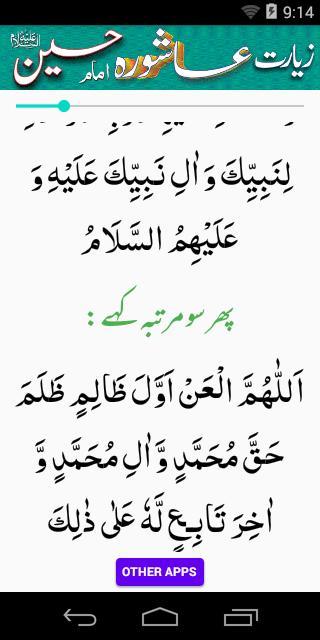 9:14
زیارت عاشورہ امام حسین علیہ السلام
لِنَبِيِّكَ وَ اٰلِ نَبِيِّكَ عَلَيْهِ وَ
عَلَيْهِمُ السَّلَامُ
پھر سو مرتبہ کہے :
اَللّٰهُمَّ الْعَنْ اَوَّلَ ظَالِمٍ ظَلَمَ
حَقَّ مُحَمَّدٍ وَّ اٰلِ مُحَمَّدٍ وَّ
اٰخِرَ تَابِعٍ لَّهٗ عَلٰى ذٰلِكَ
OTHER APPS